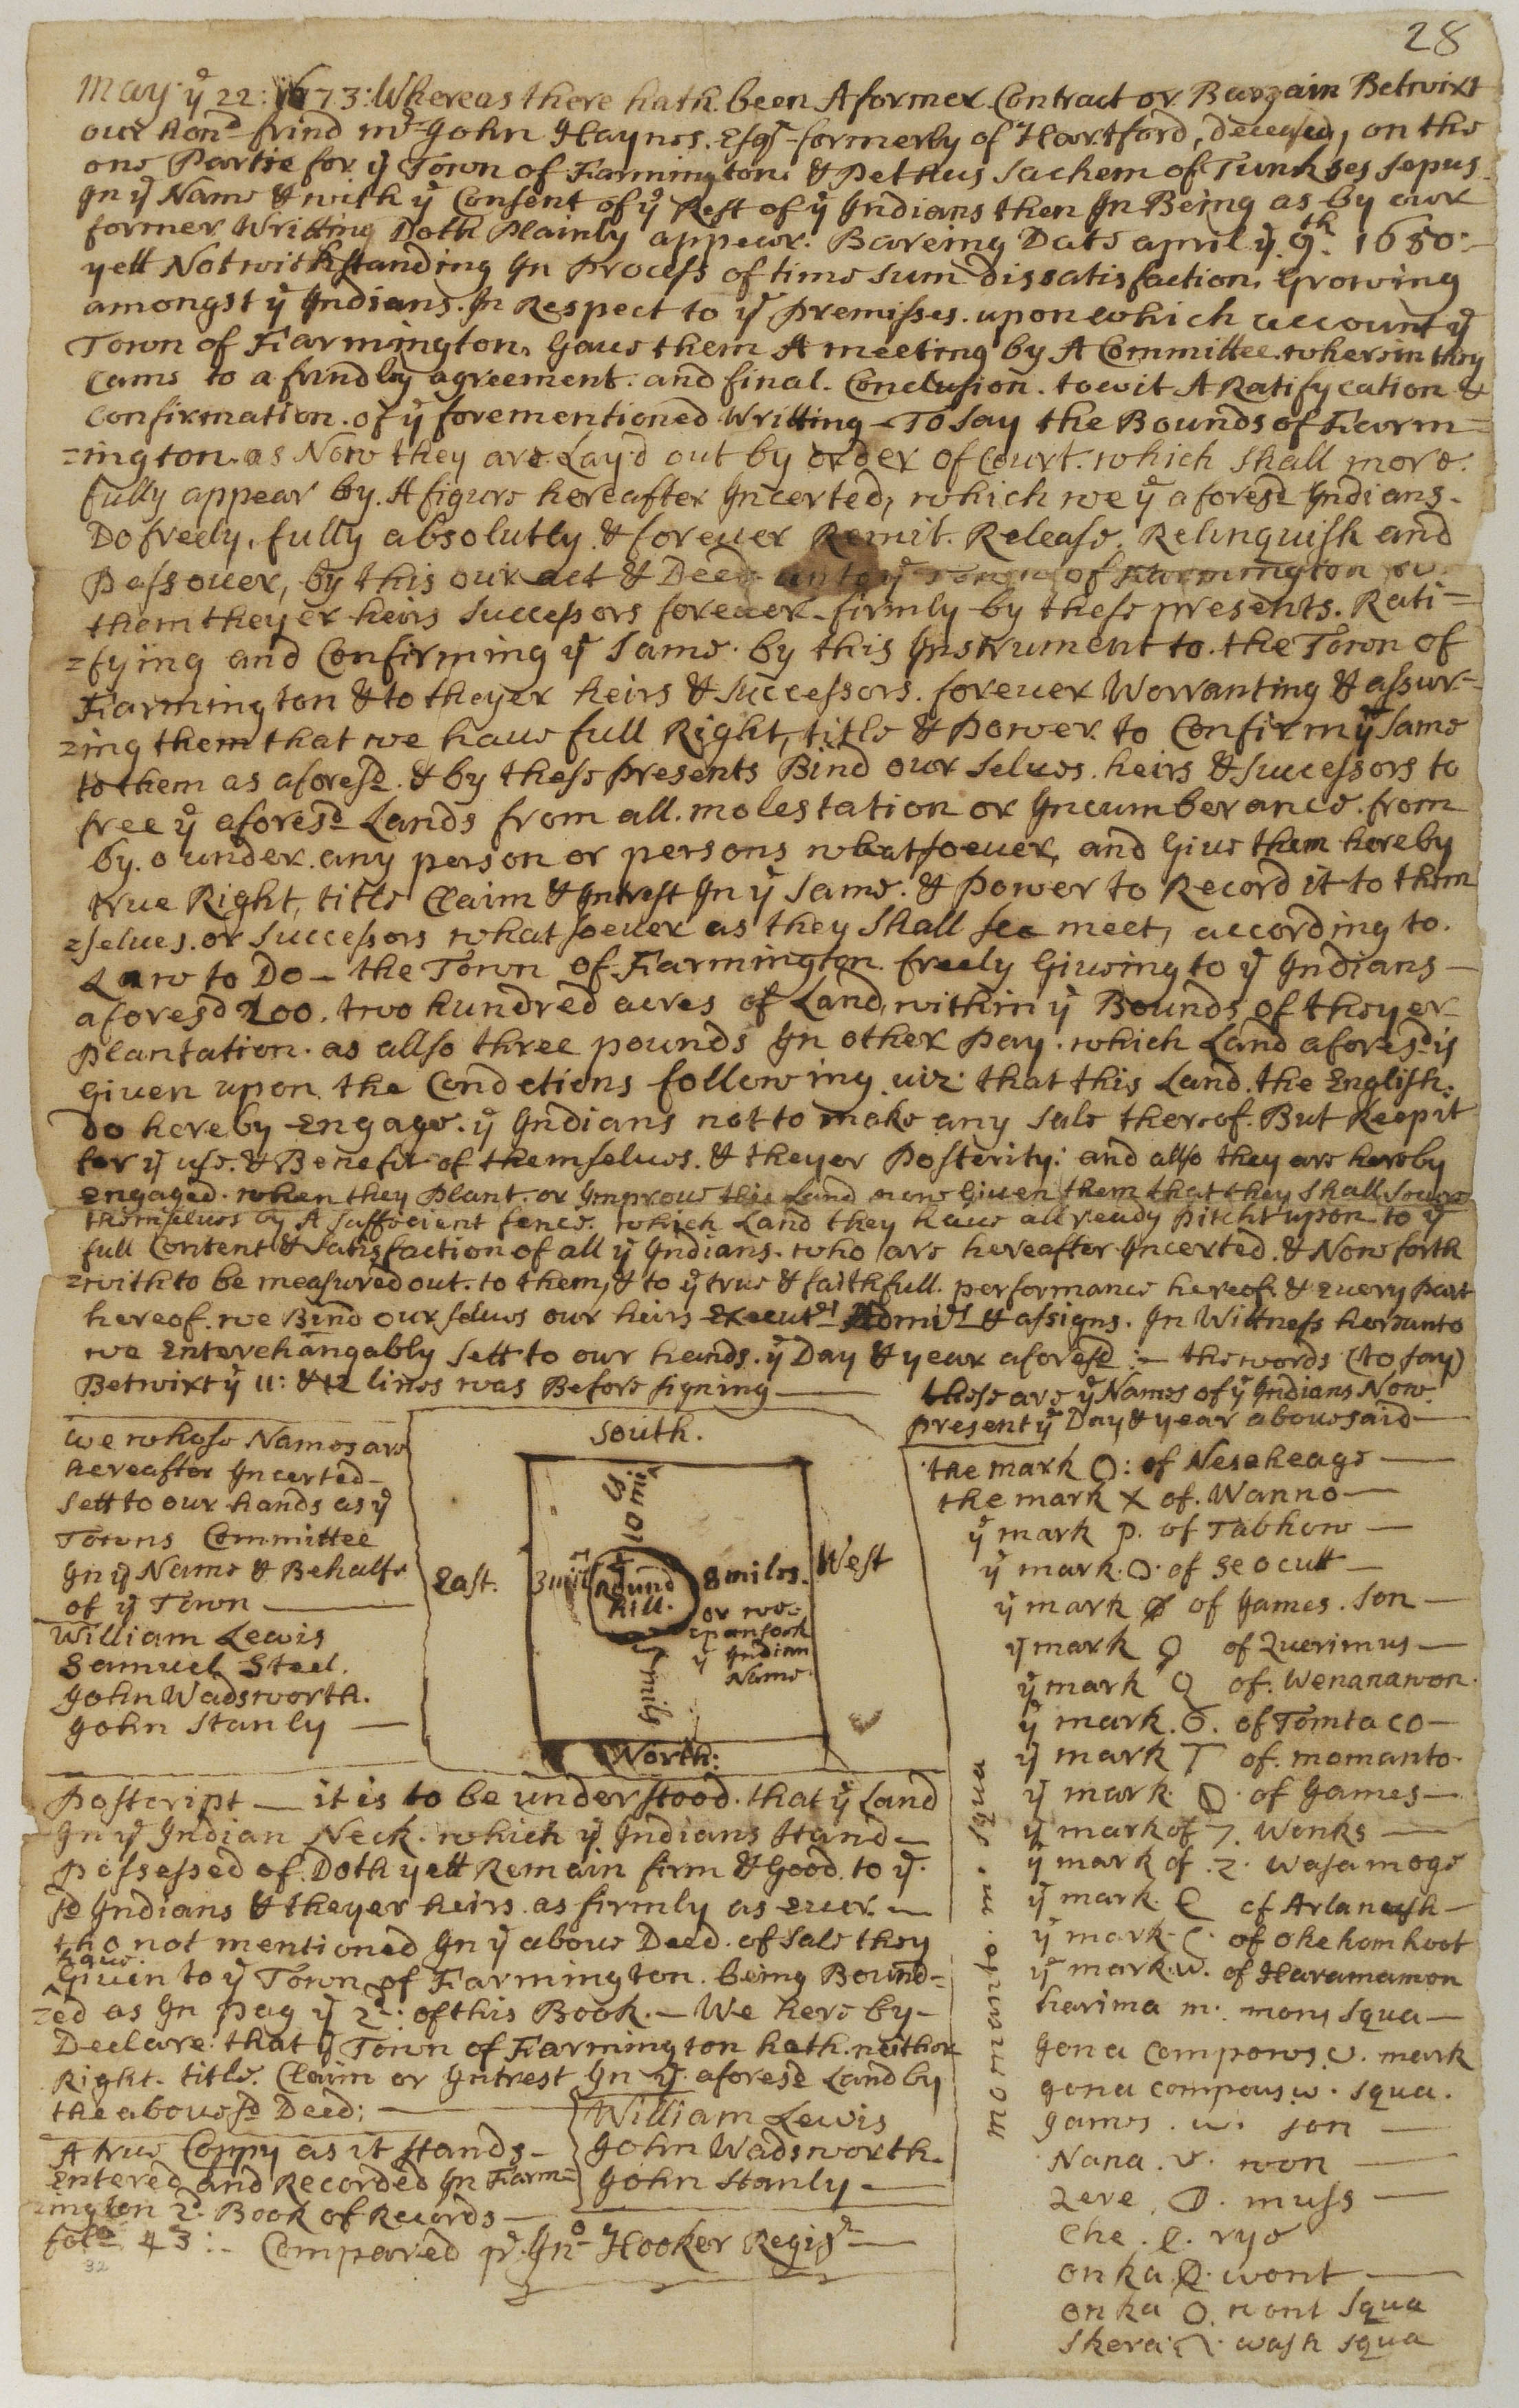 28
May ye 22: 1673: Whereas there hath been A former Contract or Bargain Betwixt
our hond frind mr John Haynes. Esqr formerly of Hartford, deceased, on the
one Partie for ye Town of Farmington & Pethus Sachem of Tunkses Sepus
In ye Name & with ye Consent of ye Rest of ye Indians then In Being as by our
former Writting Doth Plainly appear. Bareing Date april ye 9th. 1650:
yett Notwithstanding In Process of time sum dissatisfaction. Growing
amongst ye Indians. In Respect to ye Premisses. upon which account ye
Town of Farmington. Gave them A meeting by A Committee. wherein they
Came to a frindly agreement. and final. Conclusion. to wit A Ratifycation &
Confirmation. of ye forementioned Writting - To say the Bounds of Farm=
=ington. as Now they are. Lay'd out by order of Court. which shall more.
fully appear by. A figure hereafter Incerted, which we ye aforesd Indians.
Do freely, fully absolutly. & foreuer Remit. Release. Relinquish and
Pass ouer, by this our act & Deed unto ye Town of Farmington
them theyer heirs Successors foreuer - firmly by these presents. Rati=
=fying and Confirming ye Same. by this Instrument to. the Town of
Farmington & to theyer heirs & Successors. foreuer Worranting & assur=
=ing them that we haue full Right, title & Power. to Confirm ye Same
to them as aforesd. & by these Presents Bind our Selues. heirs & Successors to
free ye aforesd Lands from all. molestation or Incumberance. from
by. o under. any person or persons whatsoeuer, and Giue them hereby
true Right, title Claim & Intrest In ye Same. & Power to Record it to them
=selues. or Successors whatsoeuer as they Shall see meet, according to.
Law to Do - the Town of Farmington. freely Giuing to ye Indians -
aforesd 200. two hundred acres of Land, within ye Bounds of theyer
Plantation. as allso three pounds In other Pay. which Land aforesd is
Giuen upon the Condetions following. uiz: that this Land. the English.
Do hereby Engage. ye Indians not to make any Sale thereof. But Keep it
for ye use. & Benefit of themselues. & theyer Posterity: and allso they are hereby
Engaged. when they Plant. or Improue this Land now Giuen them that they Shall
themselues by A Saffocient fence. which Land they haue allready Pitcht upon to ye
full Content & Satisfaction of all ye Indians. who are hereafter Incerted. & Now forth
=with to be measured out. to them, & to ye true & faithfull. performance hereof. & Euery Part
hereof. we Bind our selues our heirs Executrs Admirs & assigns. In Wittness hereunto
we Enterchangably Sett to our hands. ye Day & year aforesd :- the words (to say)
Betwixt ye 11: & 12 lines was Before signing —
We whose Names are
hereafter Incerted -
Sett to our hands as ye
Towns Committee
In ye Name & Behalfe
of ye Town —
William Lewis
Samuel Steel.
John Wadsworth.
John Stanly —
South.
East.
West
North:
5 mil
or to
3 mil
Round
hill.
8 miles.
or we
pansook
ye Indian
Name.
5 mils
these are ye Names of ye Indians Now
present ye Day & year aboue said —
the mark O: of Neseheage —
the mark X of. Wanno —
ye mark p. of Tabhow —
ye mark. O. of Seocutt —
ye mark Ø of James. Son —
ye mark Q of Querimus —
ye mark Q of. Wenanawon.
ye mark. O. of Tomtaco —
ye mark T of. momanto.
ye mark. O. of James —
ye mark of 7. Wonks —
ye mark of .2. Wasamoge
ye mark. E of Arlanesh —
ye mark. C. of Ohehomhoot
ye mark. w. of Haramamon
harima m. mony Squa —
Jona Compows. v. mark
Jona compous. w. Squa.
James. w. Son —
Nana. v. won —
Zere. D. muss —
Che. e. ryo
onka. Q. wont —
onka O. wont Squa
Skera. Q. wash Squa
mowando. m. squa
Postcript — it is to be understood. that ye Land
In ye Indian Neck. which ye Indians Stand —
Possessed of. Doth yett Remain firm & Good. to ye.
sd Indians & theyer heirs. as firmly as Euer. —
tho not mentioned In ye aboue Deed. of Sale they
haue.
Giuen to ye Town of Farmington. being Bound=
=ed as In pag ye 2d: of this Book. — We here by —
Declare. that ye Town of Farmington hath. neither
Right. title. Claim or Intrest In ye. aforesd Land by
the abouesd Deed: —
William Lewis
John Wadsworth.
John Stanly —
A true Coppy as it Stands —
Entered and Recorded In Farm=
=ington 2d. Book of Records —
folo 43 :- Compared pr. Jno Hooker Registr —
32